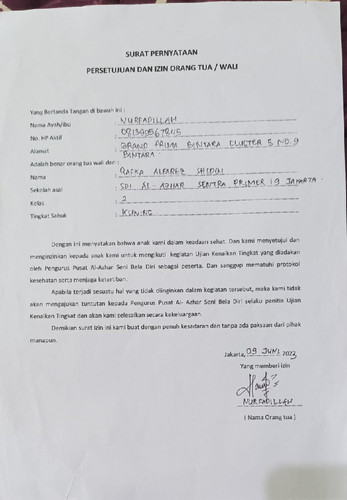 SURAT PERNYATAAN
PERSETUJUAN DAN IZIN ORANG TUA / WALI
Yang Bertanda Tangan di bawah ini :
Nama Ayah/Ibu : NURFADILLAH
No. HP Aktif :
Alamat : GRAND PRIMA BINTARA CLUSTER B NO. 9
BINTARA
Adalah benar orang tua wali dari :
Nama : RAFKA ALFAREZ
Sekolah asal : SDI AL-AZHAR SENTRA PRIMER 19 JAKARTA
Kelas : 2
Tingkat Sabuk : KUNING
Dengan ini menyatakan bahwa anak kami dalam keadaan sehat. Dan kami menyetujui dan
mengizinkan kepada anak kami untuk mengikuti kegiatan Ujian Kenaikan Tingkat yang diadakan
oleh Pengurus Pusat Al-Azhar Seni Bela Diri sebagai peserta. Dan sanggup mematuhi protokol
kesehatan serta menjaga ketertiban.
Apabila terjadi sesuatu hal yang tidak diinginkan dalam kegiatan tersebut, maka kami tidak
akan mengajukan tuntutan kepada Pengurus Pusat Al- Azhar Seni Bela Diri selaku panitia Ujian
Kenaikan Tingkat dan akan kami selesaikan secara kekeluargaan.
Demikian surat izin ini kami buat dengan penuh kesadaran dan tanpa ada paksaan dari pihak
manapun.
Jakarta, 09 JUNI 2023
Yang memberi izin
NURFADILLAH
( Nama Orang tua )